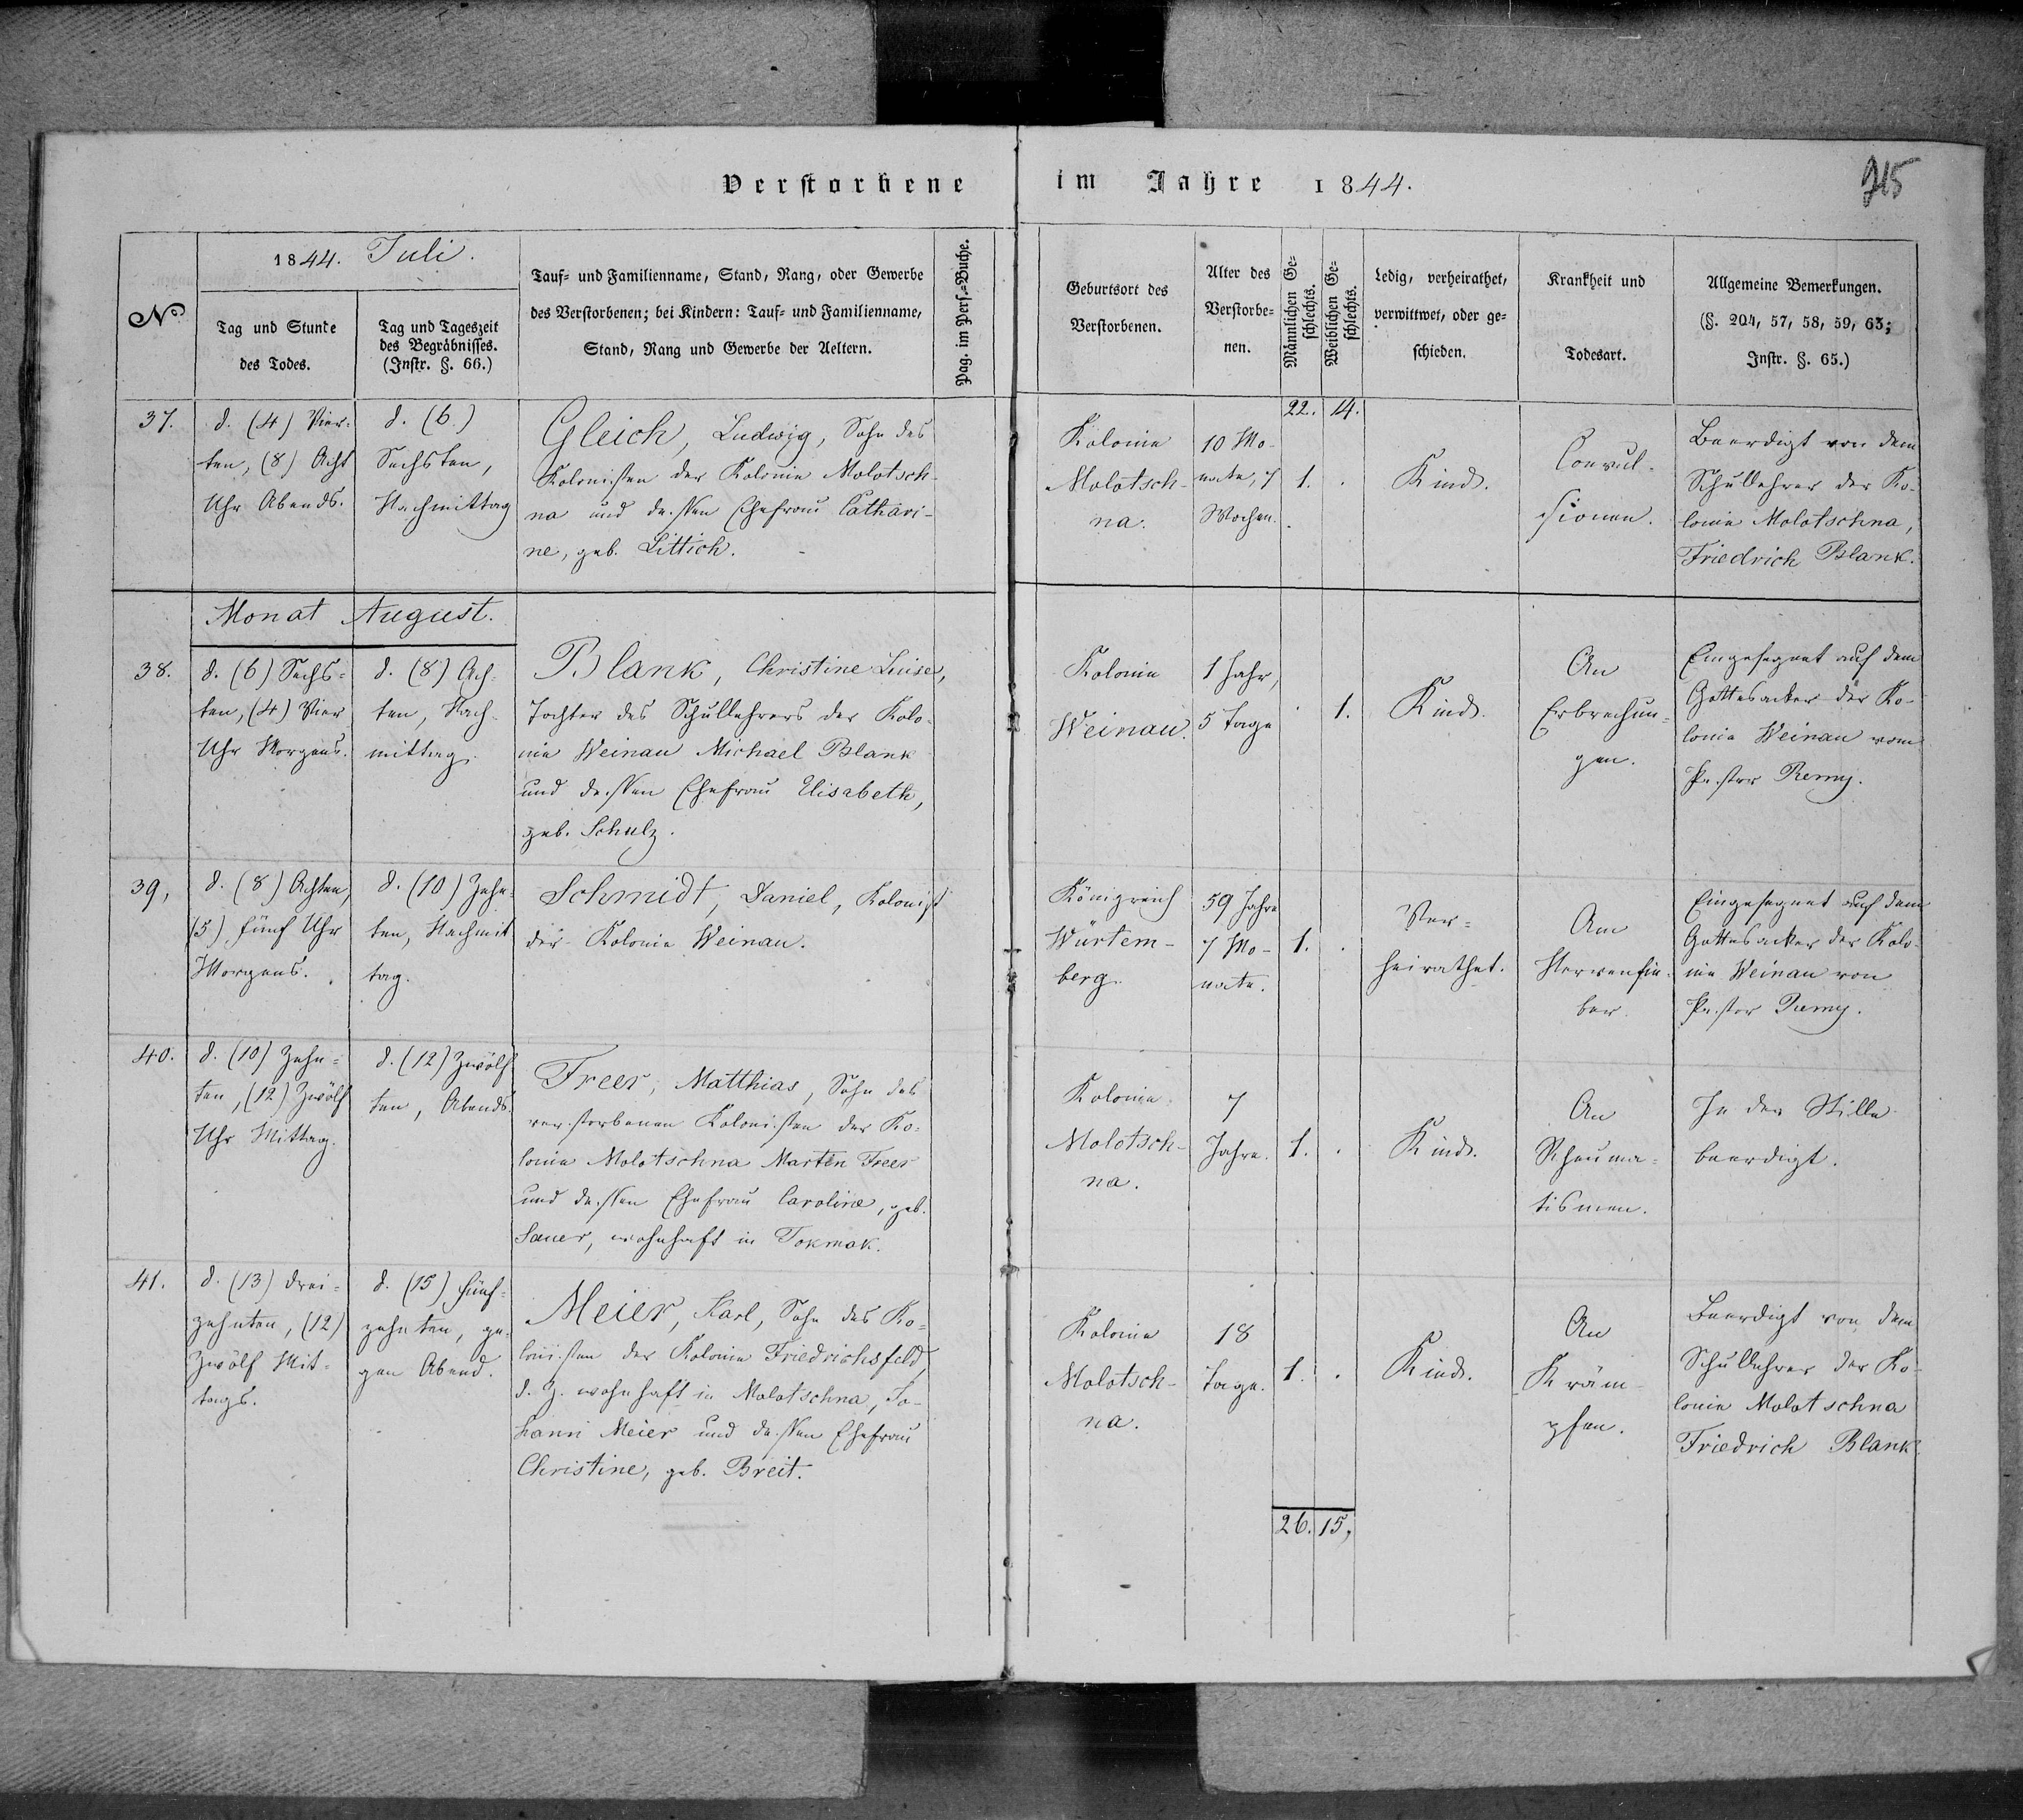 Verstorbene im Jahre 1844.
215
No
1844. Juli.
Tag und Stunde
des Todes.
Tag und Tageszeit
des Begräbnisses.
(Instr. §. 66.)
Tauf- und Familienname, Stand, Rang, oder Gewerbe
des Verstorbenen; bei Kindern: Tauf- und Familienname,
Stand, Rang und Gewerbe der Aeltern.
Pag. im Pers.-Buche.
Geburtsort des
Verstorbenen.
Alter des
Verstorbe-
nen.
Männlichen Ge-
schlechts.
Weiblichen Ge-
schlechts.
Ledig, verheirathet,
verwittwet, oder ge-
schieden.
Krankheit und
Todesart.
Allgemeine Bemerkungen.
(§. 204, 57, 58, 59, 63;
Instr. §. 65.)
22. 14.
37.
d. (4) Vier-
ten, (8) Acht
Uhr Abends.
d. (6)
Sechsten,
Nachmittag
Gleich, Ludwig, Sohn des
Kolonisten der Kolonie Molotsch-
na und dessen Ehefrau Cathari-
ne, geb. Littich.
Kolonie
Molotsch-
na.
10 Mo-
nate, 7
Wochen.
1.
Kind.
Convul-
sionen.
Beerdigt von dem
Schullehrer der Ko-
lonie Molotschna,
Friedrich Blank.
Monat August.
38.
d. (6) Sechs-
ten, (4) Vier
Uhr Morgens.
d. (8) Ach-
ten, Nach-
mittag.
Blank, Christine Luise,
Tochter des Schullehrers der Kolo-
nie Weinau Michael Blank
und dessen Ehefrau Elisabeth,
geb. Schulz.
Kolonie
Weinau.
1 Jahr,
5 Tage
1.
Kind.
An
Erbrechun-
gen.
Eingesegnet auf dem
Gottesacker der Ko-
lonie Weinau vom
Pastor Remy.
39,
d. (8) Achten,
(5) fünf Uhr
Morgens.
d. (10) Zehn-
ten, Nachmit
tag.
Schmidt, Daniel, Kolonist
der Kolonie Weinau.
Königreich
Würtem-
berg.
59 Jahre
7 Mo-
nate.
1.
Ver-
heirathet.
Am
Nervenfie-
ber.
Eingesegnet auf dem
Gottesacker der Kolo-
nie Weinau von
Pastor Remy.
40.
d. (10) Zehn-
ten, (12) Zwölf
Uhr Mittag.
d. (12) Zwölf
ten, Abends.
Freer, Matthias, Sohn des
verstorbenen Kolonisten der Ko-
lonie Molotschna Martin Freer
und dessen Ehefrau Caroline, geb.
Sauer, wohnhaft in Tokmak.
Kolonie
Molotsch-
na.
7
Jahre.
1.
Kind.
An
Rheuma-
tismen.
In der Stille
beerdigt.
41.
d. (13) Drei-
zehnten, (12)
Zwölf Mit-
tags.
d. (15) Fünf-
zehnten, ge-
gen Abend.
Meier, Karl, Sohn des Ko-
lonisten der Kolonie Friedrichsfeld
d. Z. wohnhaft in Molotschna, Jo-
hann Meier und dessen Ehefrau
Christine, geb. Breit.
Kolonie
Molotsch-
na.
18
Tage.
1.
Kind.
An
Kräm-
pfen.
Beerdigt von dem
Schullehrer der Ko-
lonie Molotschna
Friedrich Blank.
26. 15,